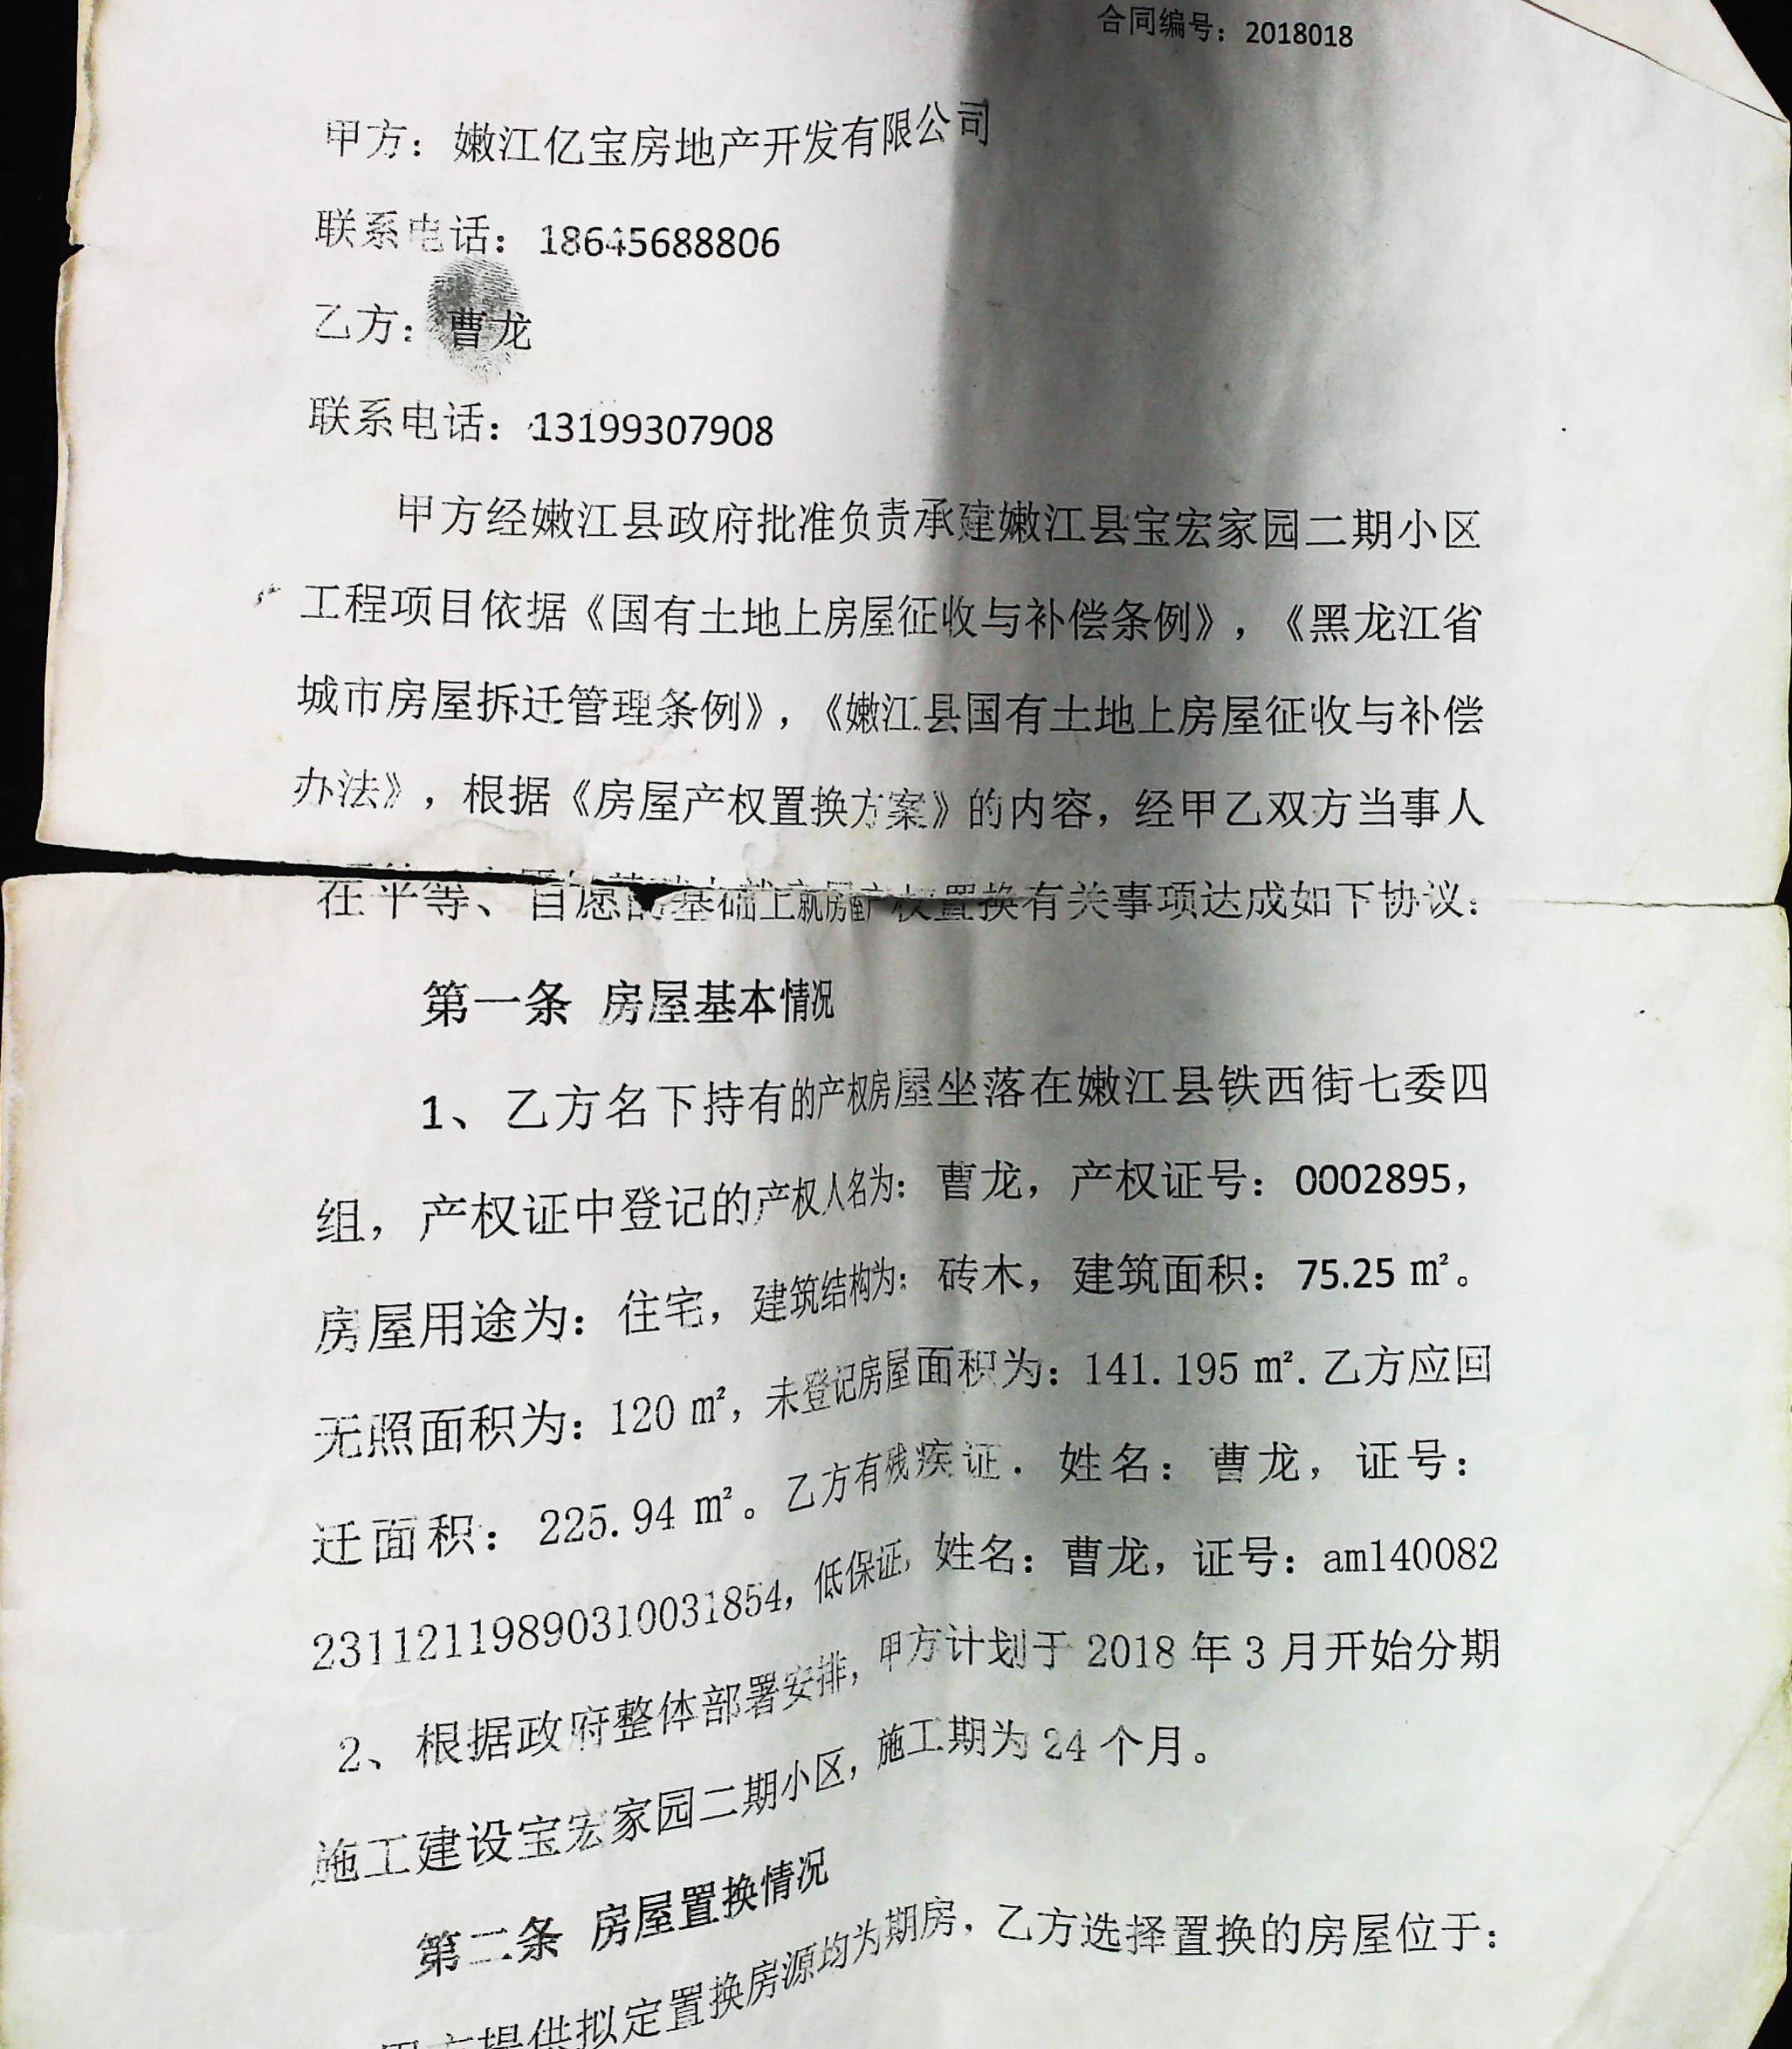 合同编号：2018018
甲方：嫩江亿宝房地产开发有限公司
联系电话：18645688806
乙方：曹龙
联系电话：13199307908
甲方经嫩江县政府批准负责承建嫩江县宝宏家园二期小区
工程项目依据《国有土地上房屋征收与补偿条例》，《黑龙江省
城市房屋拆迁管理条例》，《嫩江县国有土地上房屋征收与补偿
办法》，根据《房屋产权置换方案》的内容，经甲乙双方当事人
在平等、自愿的基础上就房屋产权置换有关事项达成如下协议：
第一条 房屋基本情况
1、乙方名下持有的产权房屋坐落在嫩江县铁西街七委四
组，产权证中登记的产权人名为：曹龙，产权证号：0002895，
房屋用途为：住宅，建筑结构为：砖木，建筑面积：75.25 ㎡。
无照面积为：120 ㎡，未登记房屋面积为：141.195 ㎡.乙方应回
迁面积：225.94 ㎡。乙方有残疾证．姓名：曹龙，证号：
23112119890310031854，低保证，姓名：曹龙，证号：am140082
2、根据政府整体部署安排，甲方计划于 2018 年 3 月开始分期
施工建设宝宏家园二期小区，施工期为 24 个月。
第二条 房屋置换情况
甲方提供拟定置换房源均为期房，乙方选择置换的房屋位于：